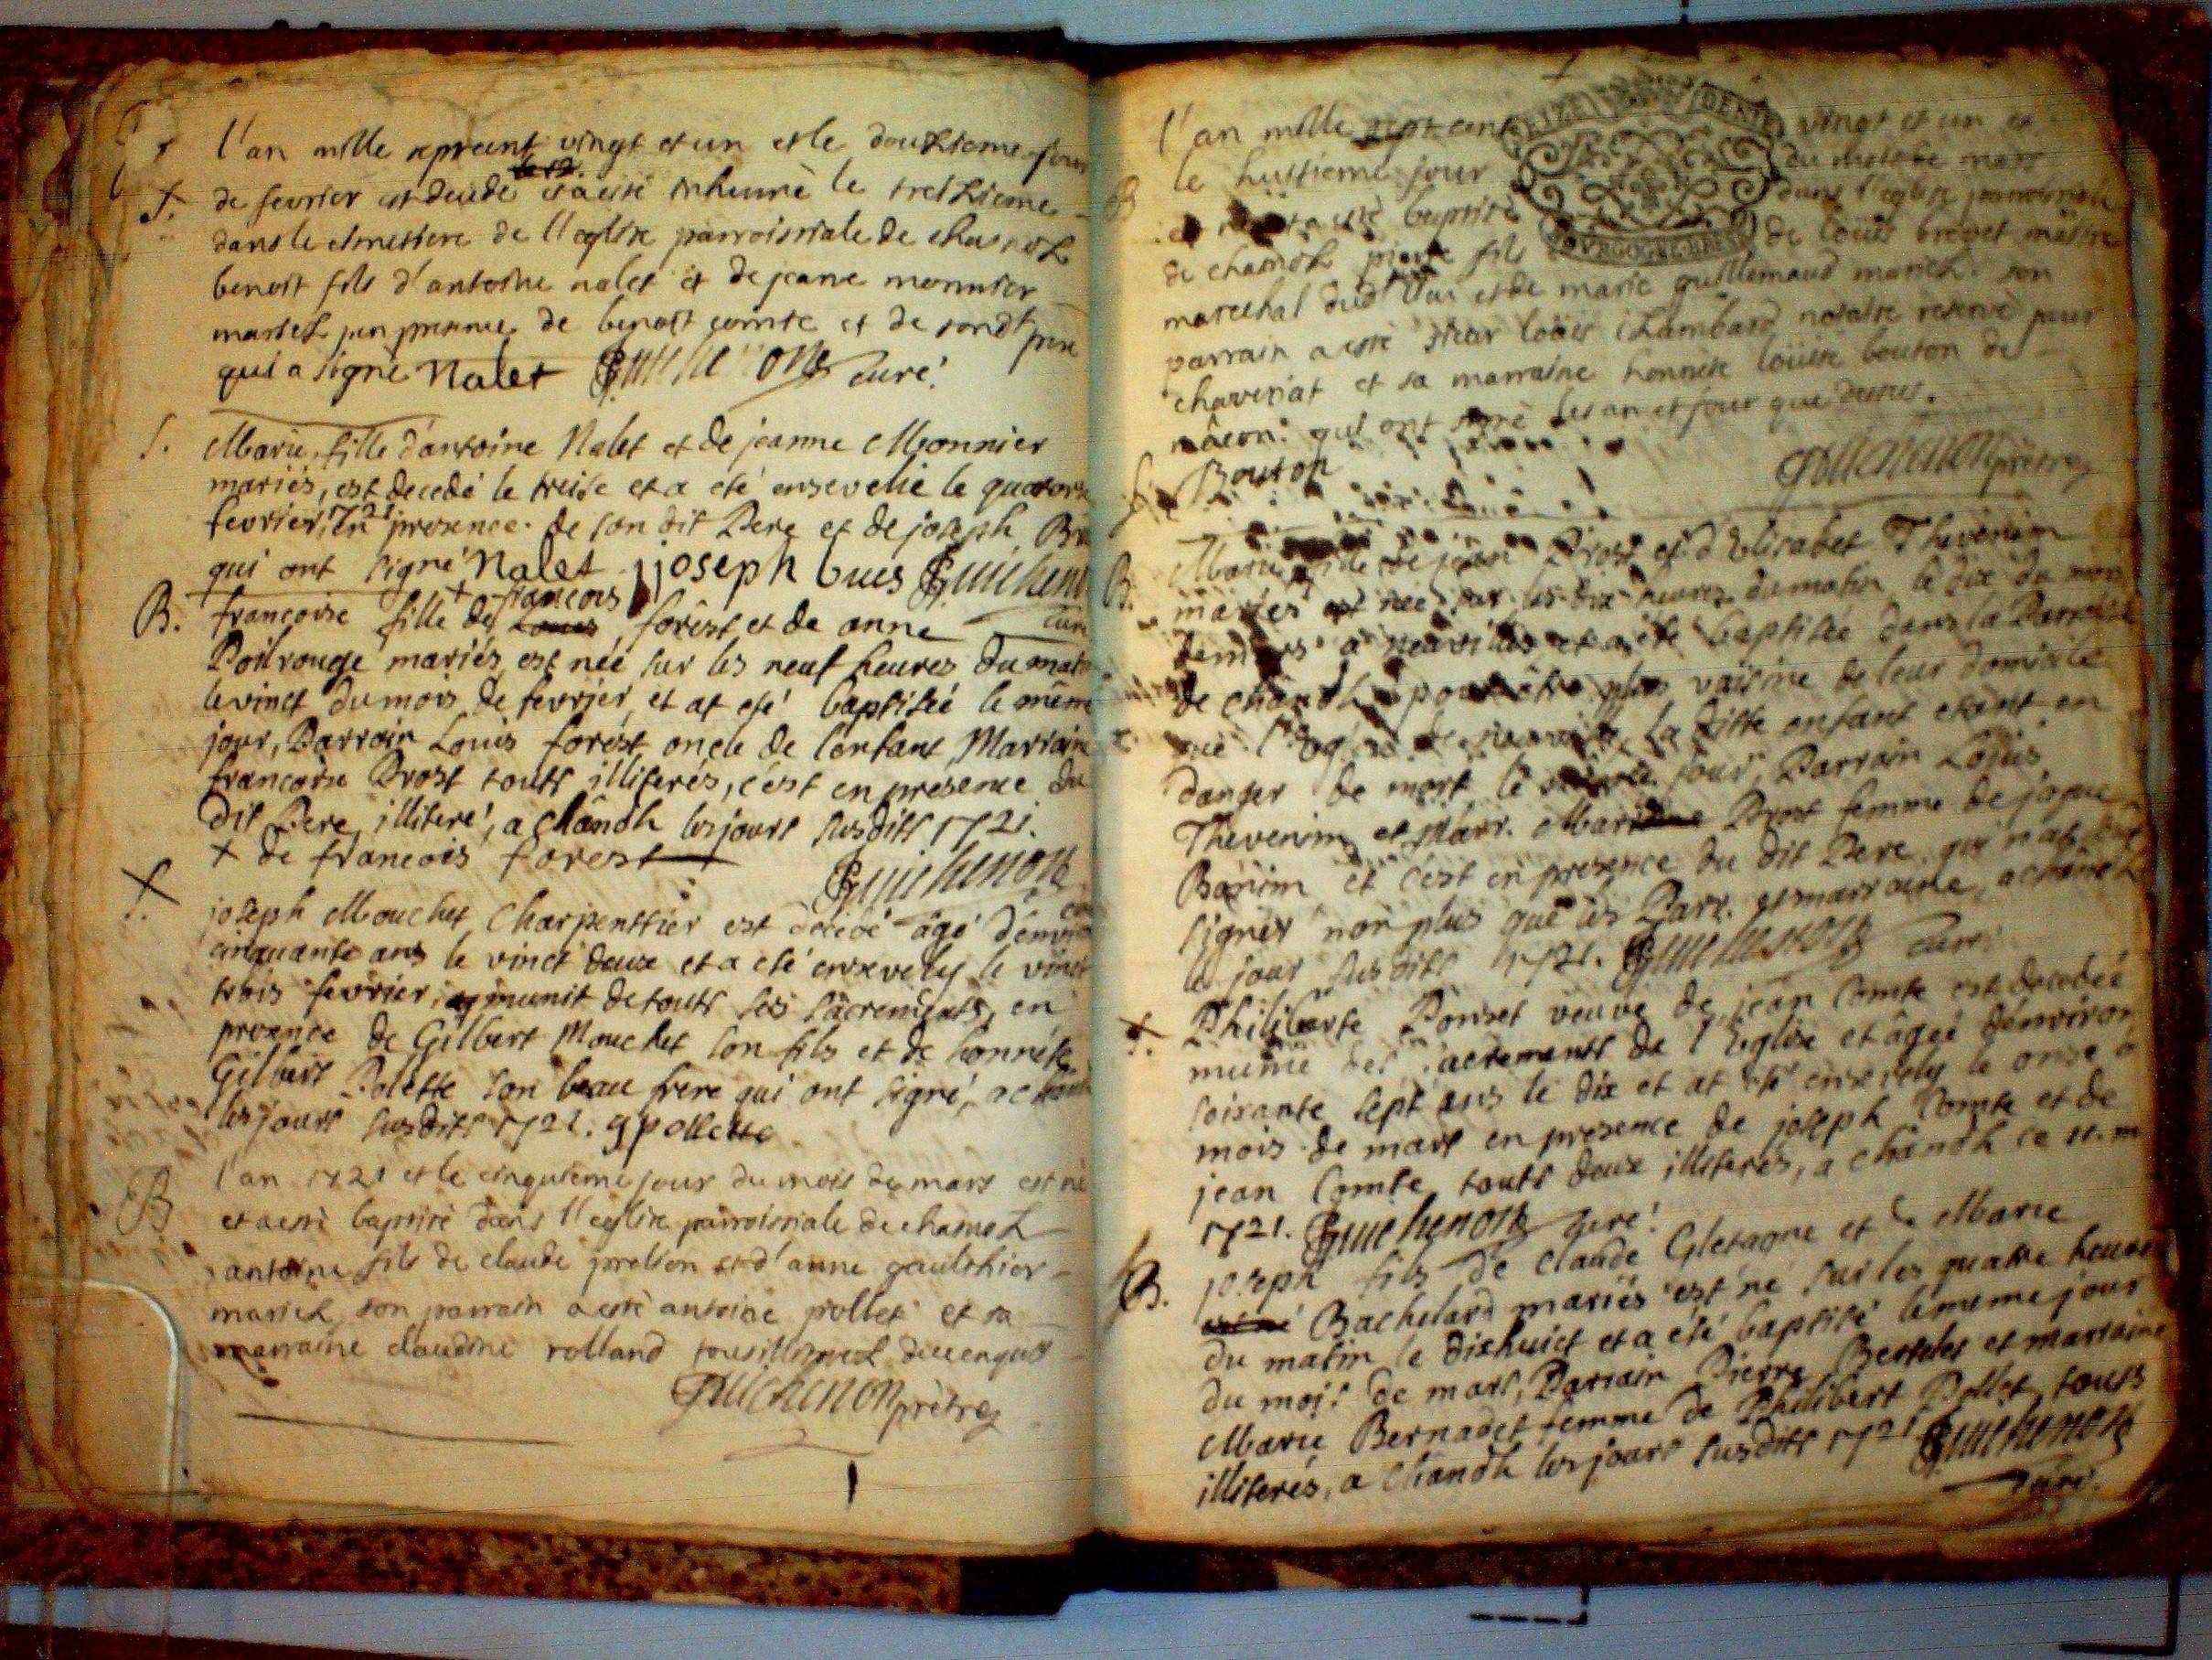 l'an mille sepcent vingt et un et le douzieme jour
de fevrier est decede et a esté inhumè le treizieme
dans le cimetiere de l'eglise parroissiale de
benoit fils d'antoine nalet et de jeane monnier
mariez en presence de benoit comte et de sondt pere
qui a signè Nalet Guichenon curé
S. Marie fille d'antoine Nalet et de jeanne Monnier
mariés, est decedé le treise et a été ensevelie le quatorse
fevrier 1721 en presence de son dit Pere et de joseph
qui ont signé Nalet joseph bues Guichenon
B. francoise fille de francois forest et de anne curé
Poilrouge mariés, est née sur les neuf heures du matin
le vinct du mois de fevrier, et at eté baptiseé le même
jour, Parrain Louis forest oncle de l'enfant, Marraine
francoise Prost touts illiterés, c'est en presence du
dit Pere illiteré, a Chandh les jours susdits 1721.
+ de francois forest
Guichenon
S. joseph Mouchet Charpenttier est decedé âgé d'environ
cinquante ans le vinct deux et a eté ensevely le vinct
trois fevrier, munit de touts ses sacrements, en
presence de Gilbert Mouchet son fils et de honnete
Gilbert Polette son beau frere qui ont signé, a
les jours susdits 1721. g pollette
B l'an 1721 et le cinquieme jour du mois de mars est né
et a estè baptisè dans l'eglise parroissiale de
antoine fils de claude et d'anne gaulthier
mariez son parrain a estè antoine pollet et sa
marraine claudine rolland
Guichenon prètre
1
l'an mille sept cent vingt et un et
B le huitieme jour du mois de mars
et a esté baptisè dans l'eglise parroissiale
de pierre fils de loüis breset maître
marechal dud lieu et de marie guillemaud mariez son
parrain a estè sieur loüis Chambard notaire reservé pour
chaveriat et sa marraine honnete loüise bouton de
mâcon qui ont signè les an et jour que dessus.
Bouton
Guichenon prètre
B. Marie fille de jean Prost et d'Elisabet Thevenin
mariés est neé sur les dix heures du matin le dix du mois
de mars a neuville et a été baptiseé dans la Parroisse
de Chandh pour être plus voisine de leur domicile
que l'Eglise de neuville, la ditte enfant etant en
danger de mort le jour, Parrain Loüis
Thevenin et Marr. Prost femme de
et c'est en presence du dit Pere qui n'at
signer non plus que les Parr. et marraine, a
le jour susdits 1721. Guichenon curé
S. Philiberte Ponset veuve de jean Comte est decedeé
munie des sacrements de l'Eglise et âgeé d'environ
soixante sept ans le dix et at eté ensevely le onse
mois de mars en presence de joseph Comte et de
jean Comte touts deux illiterés, a Chandh ce 11. m
1721. Guichenon curé
B. joseph fils de claude Gletagne et de Marie
Bachelard mariés est né sur les quatre heures
du matin le dixhuict et a été baptisé le meme jour
du mois de mars, Parrain Pierre Bertelet et marraine
Marie Bernadet femme de Philibert Pollet, touts
illiterés, a Chandh les jours susdits 1721 Guichenon
curé